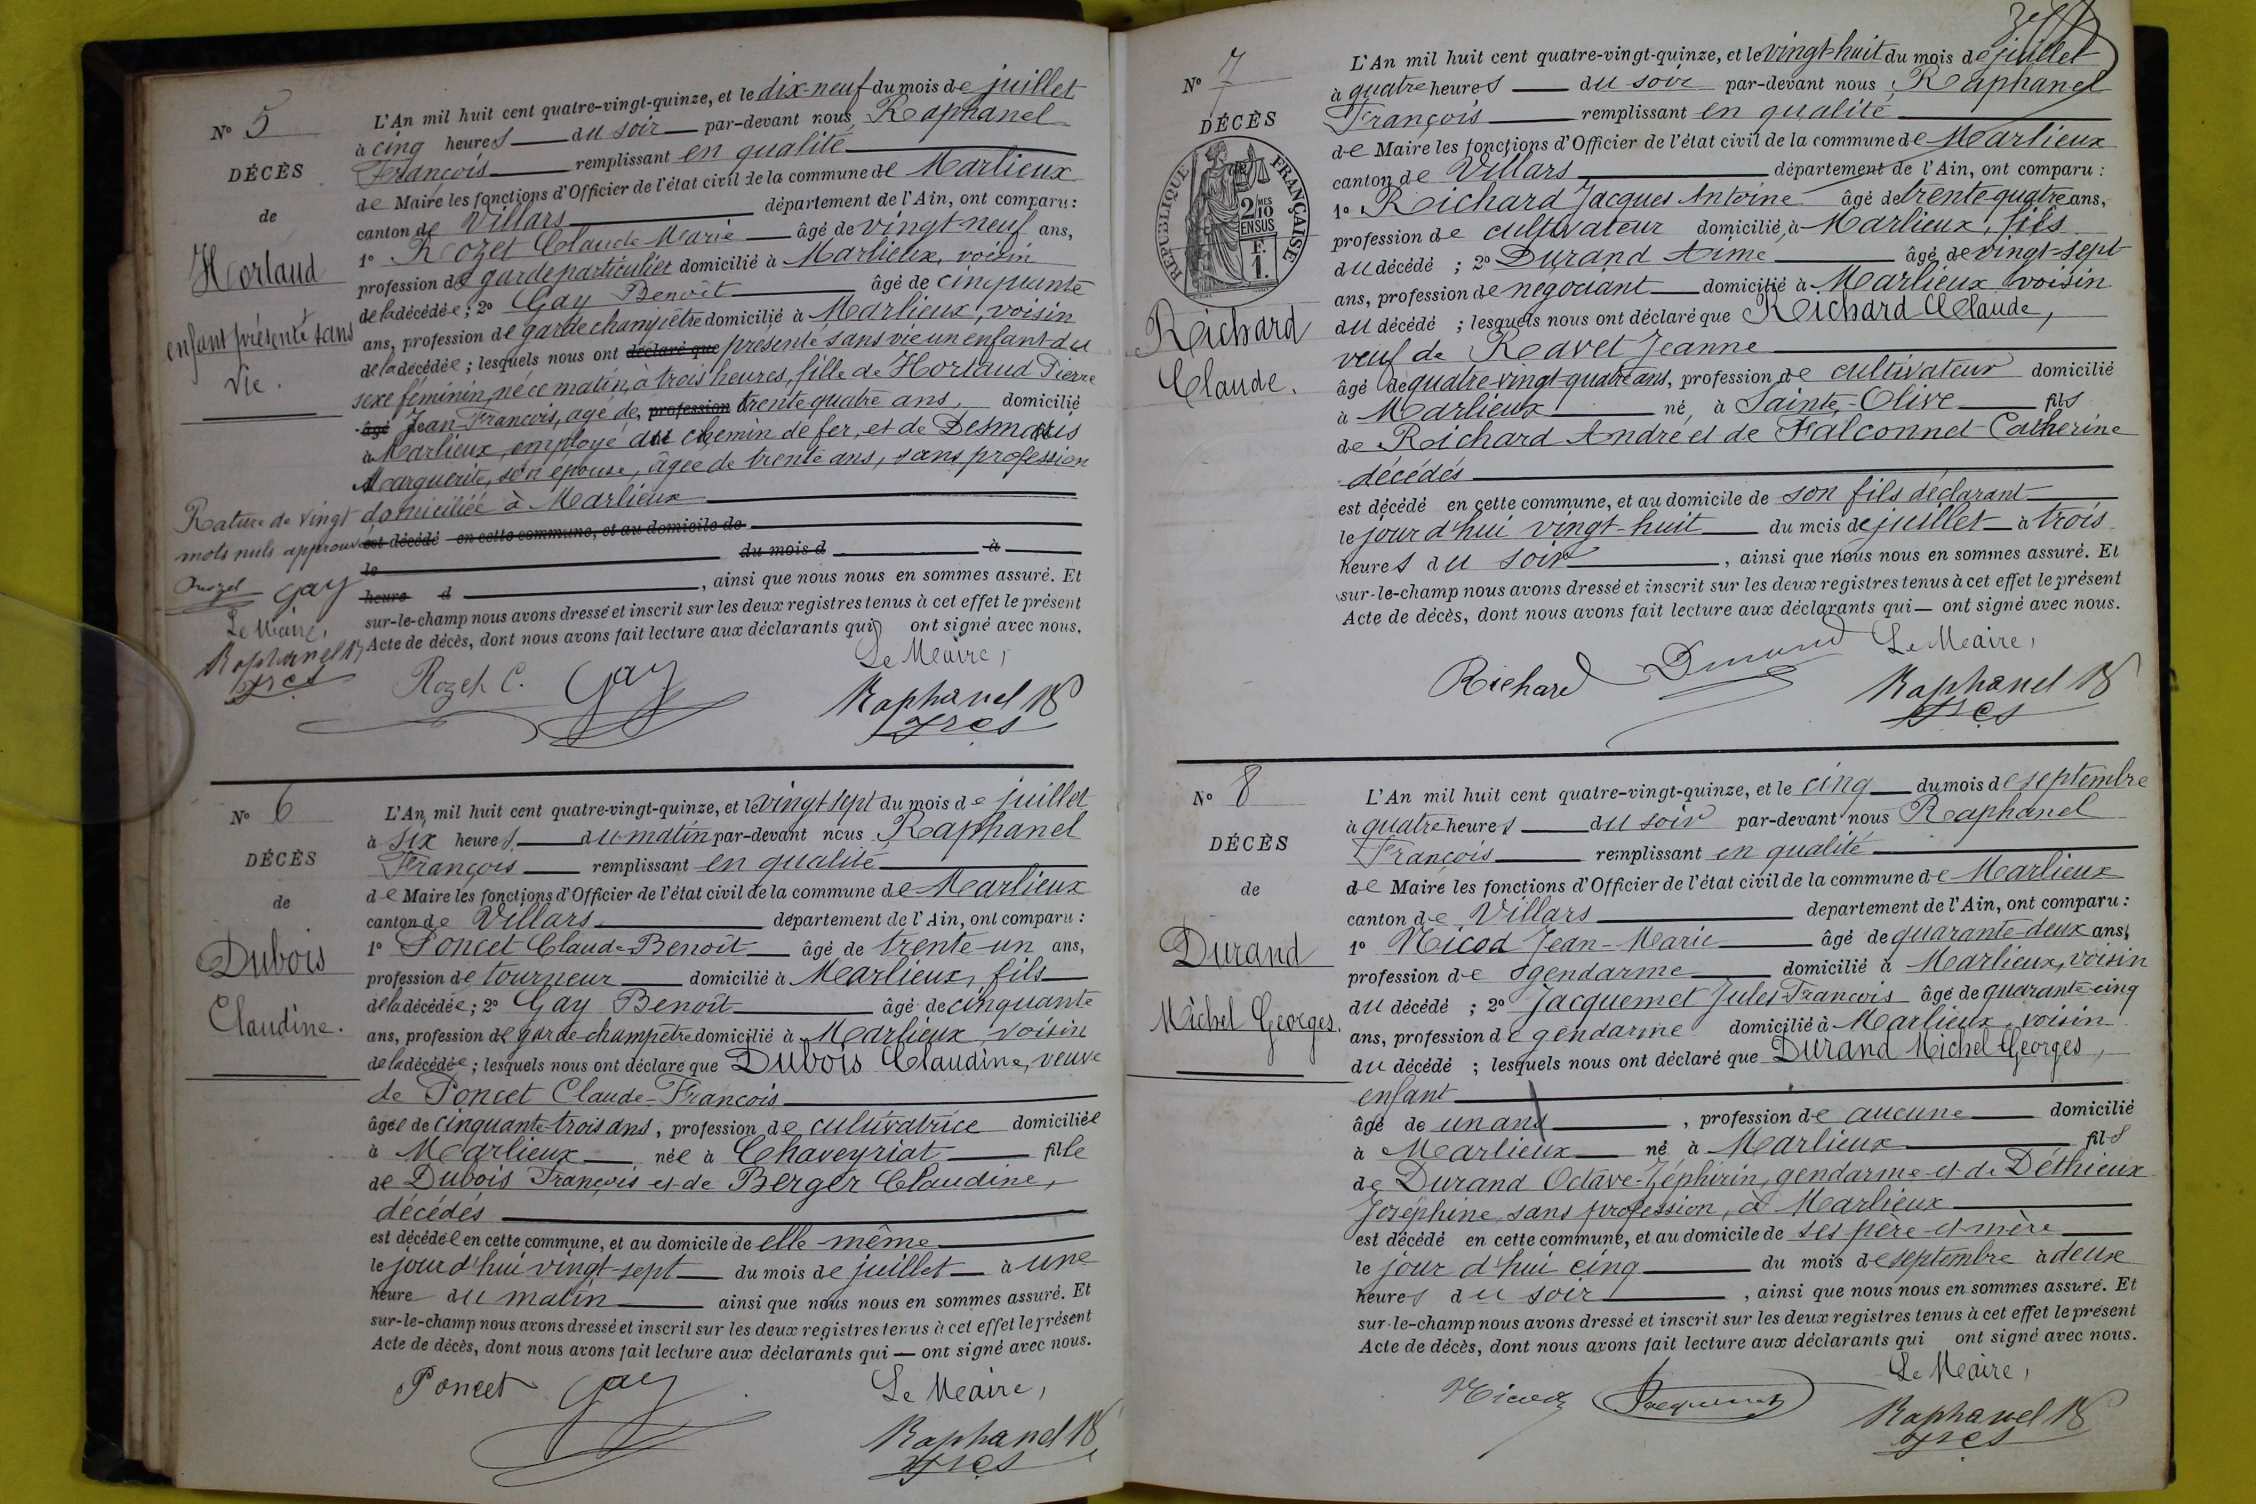 N° 5
DÉCÈS
de
Hortaud
enfant présenté sans
vie.
L'An mil huit cent quatre-vingt-quinze, et le dix-neuf du mois de juillet
à cinq heures du soir par-devant nous Raphanel
François remplissant en qualité
de Maire les fonctions d'Officier de l'état civil de la commune de Marlieux
canton de Villars département de l'Ain, ont comparu :
1° Rozet Claude Marie âgé de vingt-neuf ans,
profession de garde particulier domicilié à Marlieux, voisin
de la décédée ; 2° Gay Benoît âgé de cinquante
ans, profession de garde champêtre domicilié à Marlieux, voisin
de la décédée ; lesquels nous ont déclaré que présenté sans vie un enfant du
sexe féminin, né ce matin, à trois heures, fille de Hortaud Pierre
âgé Jean-François, agé de, profession trente quatre ans, domicilié
à Marlieux, employé au chemin de fer, et de Desmaris
Marguerite, son épouse, âgée de trente ans, sans profession
domiciliée à Marlieux
est décédé en cette commune, et au domicile de
le du mois d à
heure d , ainsi que nous nous en sommes assuré. Et
sur-le-champ nous avons dressé et inscrit sur les deux registres tenus à cet effet le présent
Acte de décès, dont nous avons fait lecture aux déclarants qui ont signé avec nous.
Rature de vingt
mots nuls approuvé
Rozet Gay
Le Maire,
Raphanel
fres
Rozet C. Gay
Le Maire,
Raphanel
fres
N° 6
DÉCÈS
de
Dubois
Claudine.
L'An mil huit cent quatre-vingt-quinze, et le vingt sept du mois de juillet
à six heures du matin par-devant nous Raphanel
François remplissant en qualité
de Maire les fonctions d'Officier de l'état civil de la commune de Marlieux
canton de Villars département de l'Ain, ont comparu :
1° Poncet Claude-Benoît âgé de trente-un ans,
profession de tourneur domicilié à Marlieux, fils
de la décédée ; 2° Gay Benoît âgé de cinquante
ans, profession de garde-champêtre domicilié à Marlieux voisin
de la décédée ; lesquels nous ont déclaré que Dubois Claudine, veuve
de Poncet Claude-François
âgée de cinquante-trois ans, profession de cultivatrice domiciliée
à Marlieux née à Chaveyriat fille
de Dubois François et de Berger Claudine,
décédés
est décédée en cette commune, et au domicile de elle-même
le jour d'hui vingt-sept du mois de juillet à une
heure du matin ainsi que nous nous en sommes assuré. Et
sur-le-champ nous avons dressé et inscrit sur les deux registres tenus à cet effet le présent
Acte de décès, dont nous avons fait lecture aux déclarants qui — ont signé avec nous.
Poncet Gay
Le Maire,
Raphanel
fres
N° 7
DÉCÈS
de
RÉPUBLIQUE FRANÇAISE
2/10 MES
EN SUS
F.
1.
Richard
Claude.
L'An mil huit cent quatre-vingt-quinze, et le vingt-huit du mois de juillet
à quatre heures du soir par-devant nous Raphanel
François remplissant en qualité
de Maire les fonctions d'Officier de l'état civil de la commune de Marlieux
canton de Villars département de l'Ain, ont comparu :
1° Richard Jacques Antoine âgé de trente-quatre ans,
profession de cultivateur domicilié à Marlieux, fils
du décédé ; 2° Durand Aimé âgé de vingt-sept
ans, profession de négociant domicilié à Marlieux voisin
du décédé ; lesquels nous ont déclaré que Richard Claude,
veuf de Ravet Jeanne
âgé de quatre-vingt-quatre ans, profession de cultivateur domicilié
à Marlieux né à Sainte-Olive fils
de Richard André et de Falconnet Catherine
décédés
est décédé en cette commune, et au domicile de son fils déclarant
le jour d'hui vingt-huit du mois de juillet à trois
heures du soir , ainsi que nous nous en sommes assuré. Et
sur-le-champ nous avons dressé et inscrit sur les deux registres tenus à cet effet le présent
Acte de décès, dont nous avons fait lecture aux déclarants qui — ont signé avec nous.
Richard Durand
Le Maire,
Raphanel
fres
N° 8
DÉCÈS
de
Durand
Michel Georges.
L'An mil huit cent quatre-vingt-quinze, et le cinq du mois de septembre
à quatre heures du soir par-devant nous Raphanel
François remplissant en qualité
de Maire les fonctions d'Officier de l'état civil de la commune de Marlieux
canton de Villars département de l'Ain, ont comparu :
1° Nicod Jean-Marie âgé de quarante-deux ans,
profession de gendarme domicilié à Marlieux, voisin
du décédé ; 2° Jacquemet Jules François âgé de quarante-cinq
ans, profession de gendarme domicilié à Marlieux, voisin
du décédé ; lesquels nous ont déclaré que Durand Michel Georges,
enfant
âgé de un ans , profession de aucune domicilié
à Marlieux né à Marlieux fils
de Durand Octave-Zéphirin, gendarme et de Déthieux
Joséphine, sans profession, à Marlieux
est décédé en cette commune, et au domicile de ses père et mère
le jour d'hui cinq du mois de septembre à deux
heures du soir , ainsi que nous nous en sommes assuré. Et
sur-le-champ nous avons dressé et inscrit sur les deux registres tenus à cet effet le présent
Acte de décès, dont nous avons fait lecture aux déclarants qui ont signé avec nous.
Nicod Jacquemet
Le Maire,
Raphanel
fres